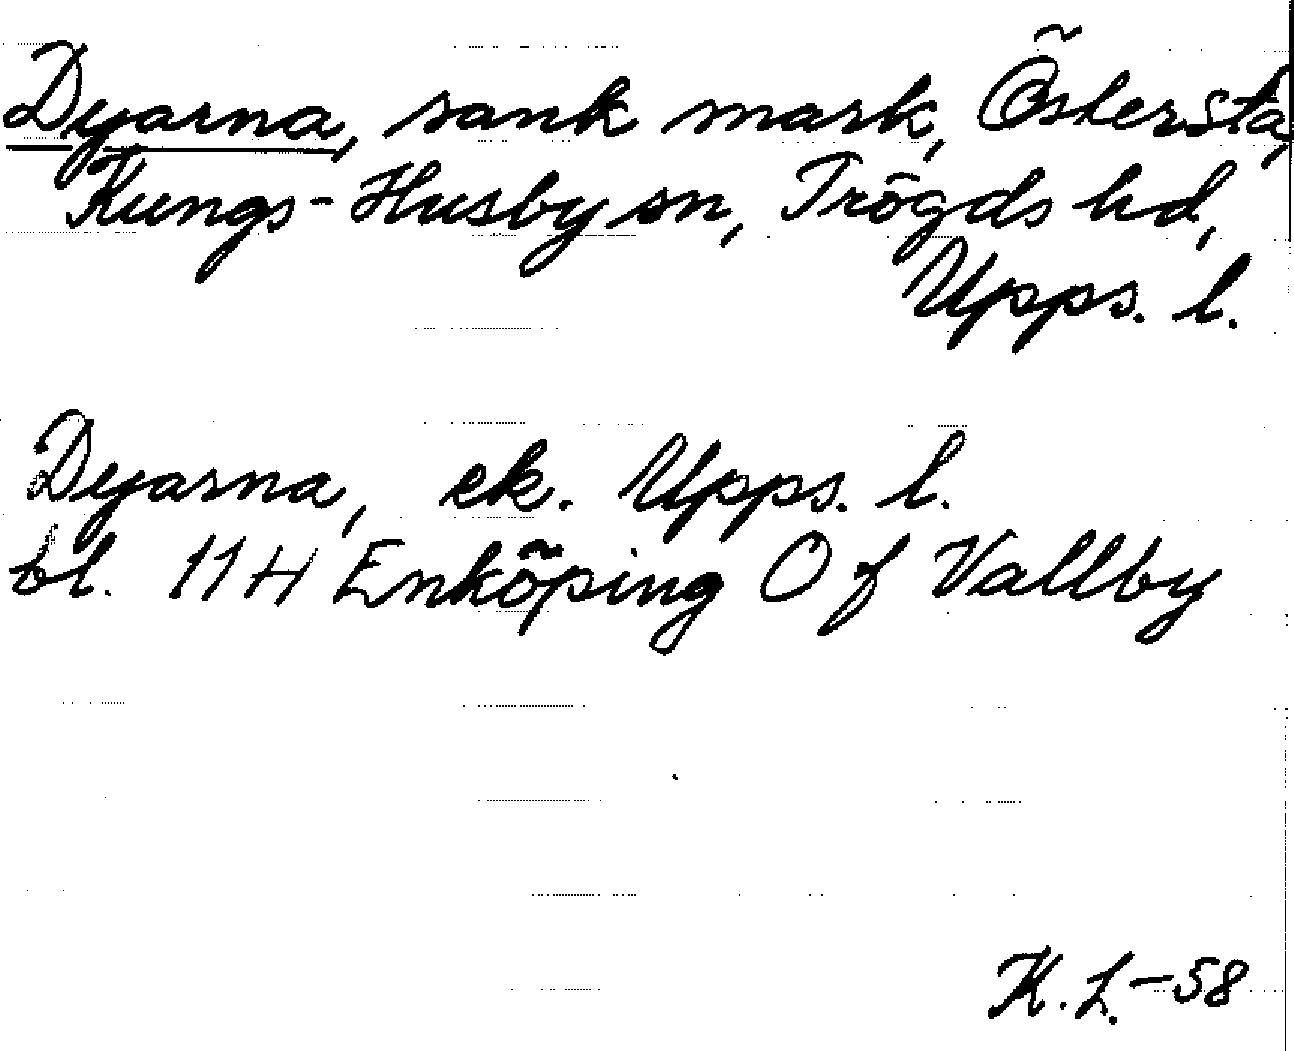 Dyarna, sank mark, Östersta,
Kungs-Husby sn, Trögds hd,
Upps. l.
Dyarna, ek. Upps. l.
bl. 11 H Enköping O f Vallby
K. L. -58